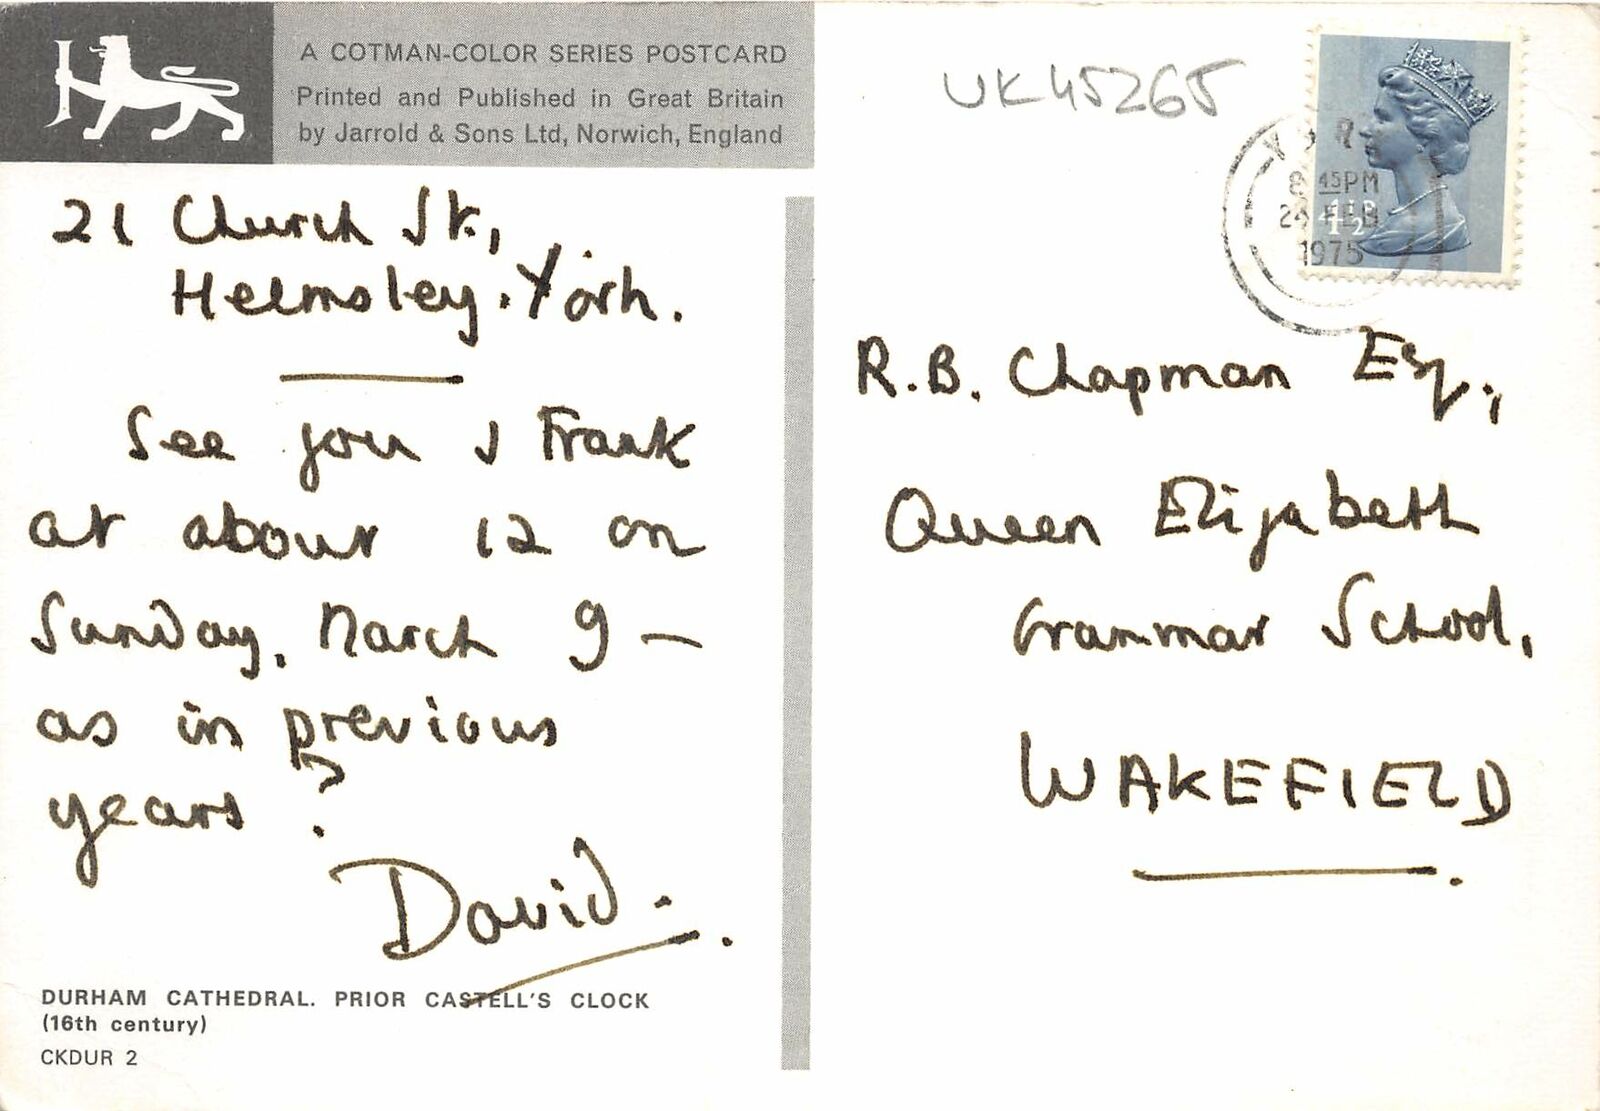 A COTMAN-COLOR SERIES POSTCARD
Printed and Published in Great Britain
by Jarrold & Sons Ltd, Norwich, England
21 Church St.,
Helmsley. York.
See you & Frank
at about 12 on
Sunday, March 9 —
as in previous
years?
David.
DURHAM CATHEDRAL. PRIOR CASTELL'S CLOCK
(16th century)
CKDUR 2
UK45265
8 45PM
FEB
1975
4½P
R. B. Chapman Esq.,
Queen Elizabeth
Grammar School,
WAKEFIELD.